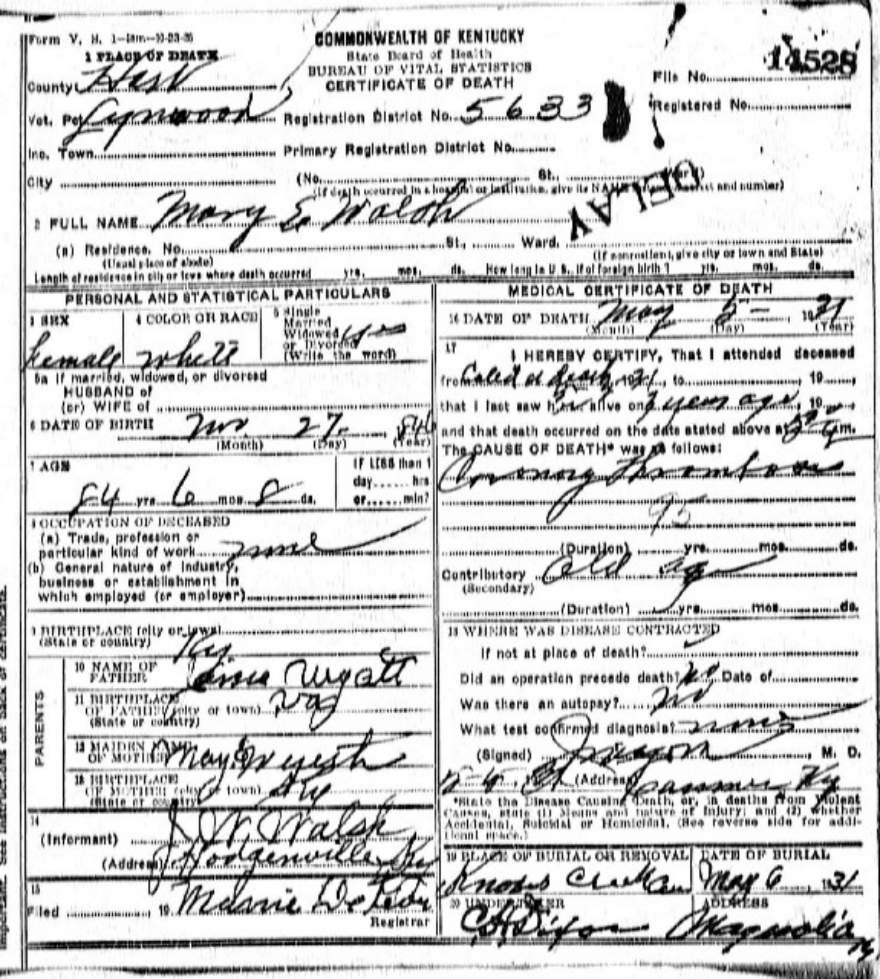 Form V. S. 1
COMMONWEALTH OF KENTUCKY
State Board of Health
BUREAU OF VITAL STATISTICS
CERTIFICATE OF DEATH
14528
File No.
Registered No.
1 PLACE OF DEATH
County Hart
Vot. Pct. Lynwood Registration District No. 5633
Inc. Town Primary Registration District No.
City (No. St. Ward)
(If death occurred in a hospital or institution, give its NAME instead of street and number)
DELAY
2 FULL NAME Mary E Walsh
(a) Residence. No. St., Ward.
(Usual place of abode) (If nonresident, give city or town and State)
Length of residence in city or town where death occurred yrs. mos. ds. How long in U. S., if of foreign birth? yrs. mos. ds.
PERSONAL AND STATISTICAL PARTICULARS
3 SEX 4 COLOR OR RACE 5 Single
Married
Widowed
or Divorced
(Write the word)
Female White
5a If married, widowed, or divorced
HUSBAND of
(or) WIFE of
6 DATE OF BIRTH 27
(Month) (Day) (Year)
7 AGE
84 yrs 6 mos 8 ds.
IF LESS than 1
day hrs
or min?
8 OCCUPATION OF DECEASED
(a) Trade, profession or
particular kind of work none
(b) General nature of Industry,
business or establishment in
which employed (or employer)
9 BIRTHPLACE (city or town)
(State or country) Ky
PARENTS
10 NAME OF
FATHER Wyatt
11 BIRTHPLACE
OF FATHER (city or town) Va
(State or country)
12 MAIDEN NAME
OF MOTHER
13 BIRTHPLACE
OF MOTHER (city or town) Ky
(State or country)
14
(Informant) J. W. Walsh
(Address) Hodgenville Ky
15
Filed 19
Registrar
MEDICAL CERTIFICATE OF DEATH
16 DATE OF DEATH May 5- 1931
(Month) (Day) (Year)
17
I HEREBY CERTIFY, That I attended deceased
from 19 , to 19
that I last saw h alive on years ago, 19
and that death occurred on the date stated above at m.
The CAUSE OF DEATH* was as follows:
Coronary Thrombosis
95
(Duration) yrs. mos. ds.
Contributory Old age
(Secondary)
(Duration) yrs. mos. ds.
18 WHERE WAS DISEASE CONTRACTED
If not at place of death?
Did an operation precede death? No Date of
Was there an autopsy? No
What test confirmed diagnosis? none
(Signed) M. D.
(Address) Canmer Ky
*State the Disease Causing Death, or, in deaths from Violent
Causes, state (1) Means and nature of Injury; and (2) whether
Accidental, Suicidal or Homicidal. (See reverse side for addi-
tional space.)
19 PLACE OF BURIAL OR REMOVAL DATE OF BURIAL
May 6 1931
20 UNDERTAKER ADDRESS
Dixon Magnolia
Ky